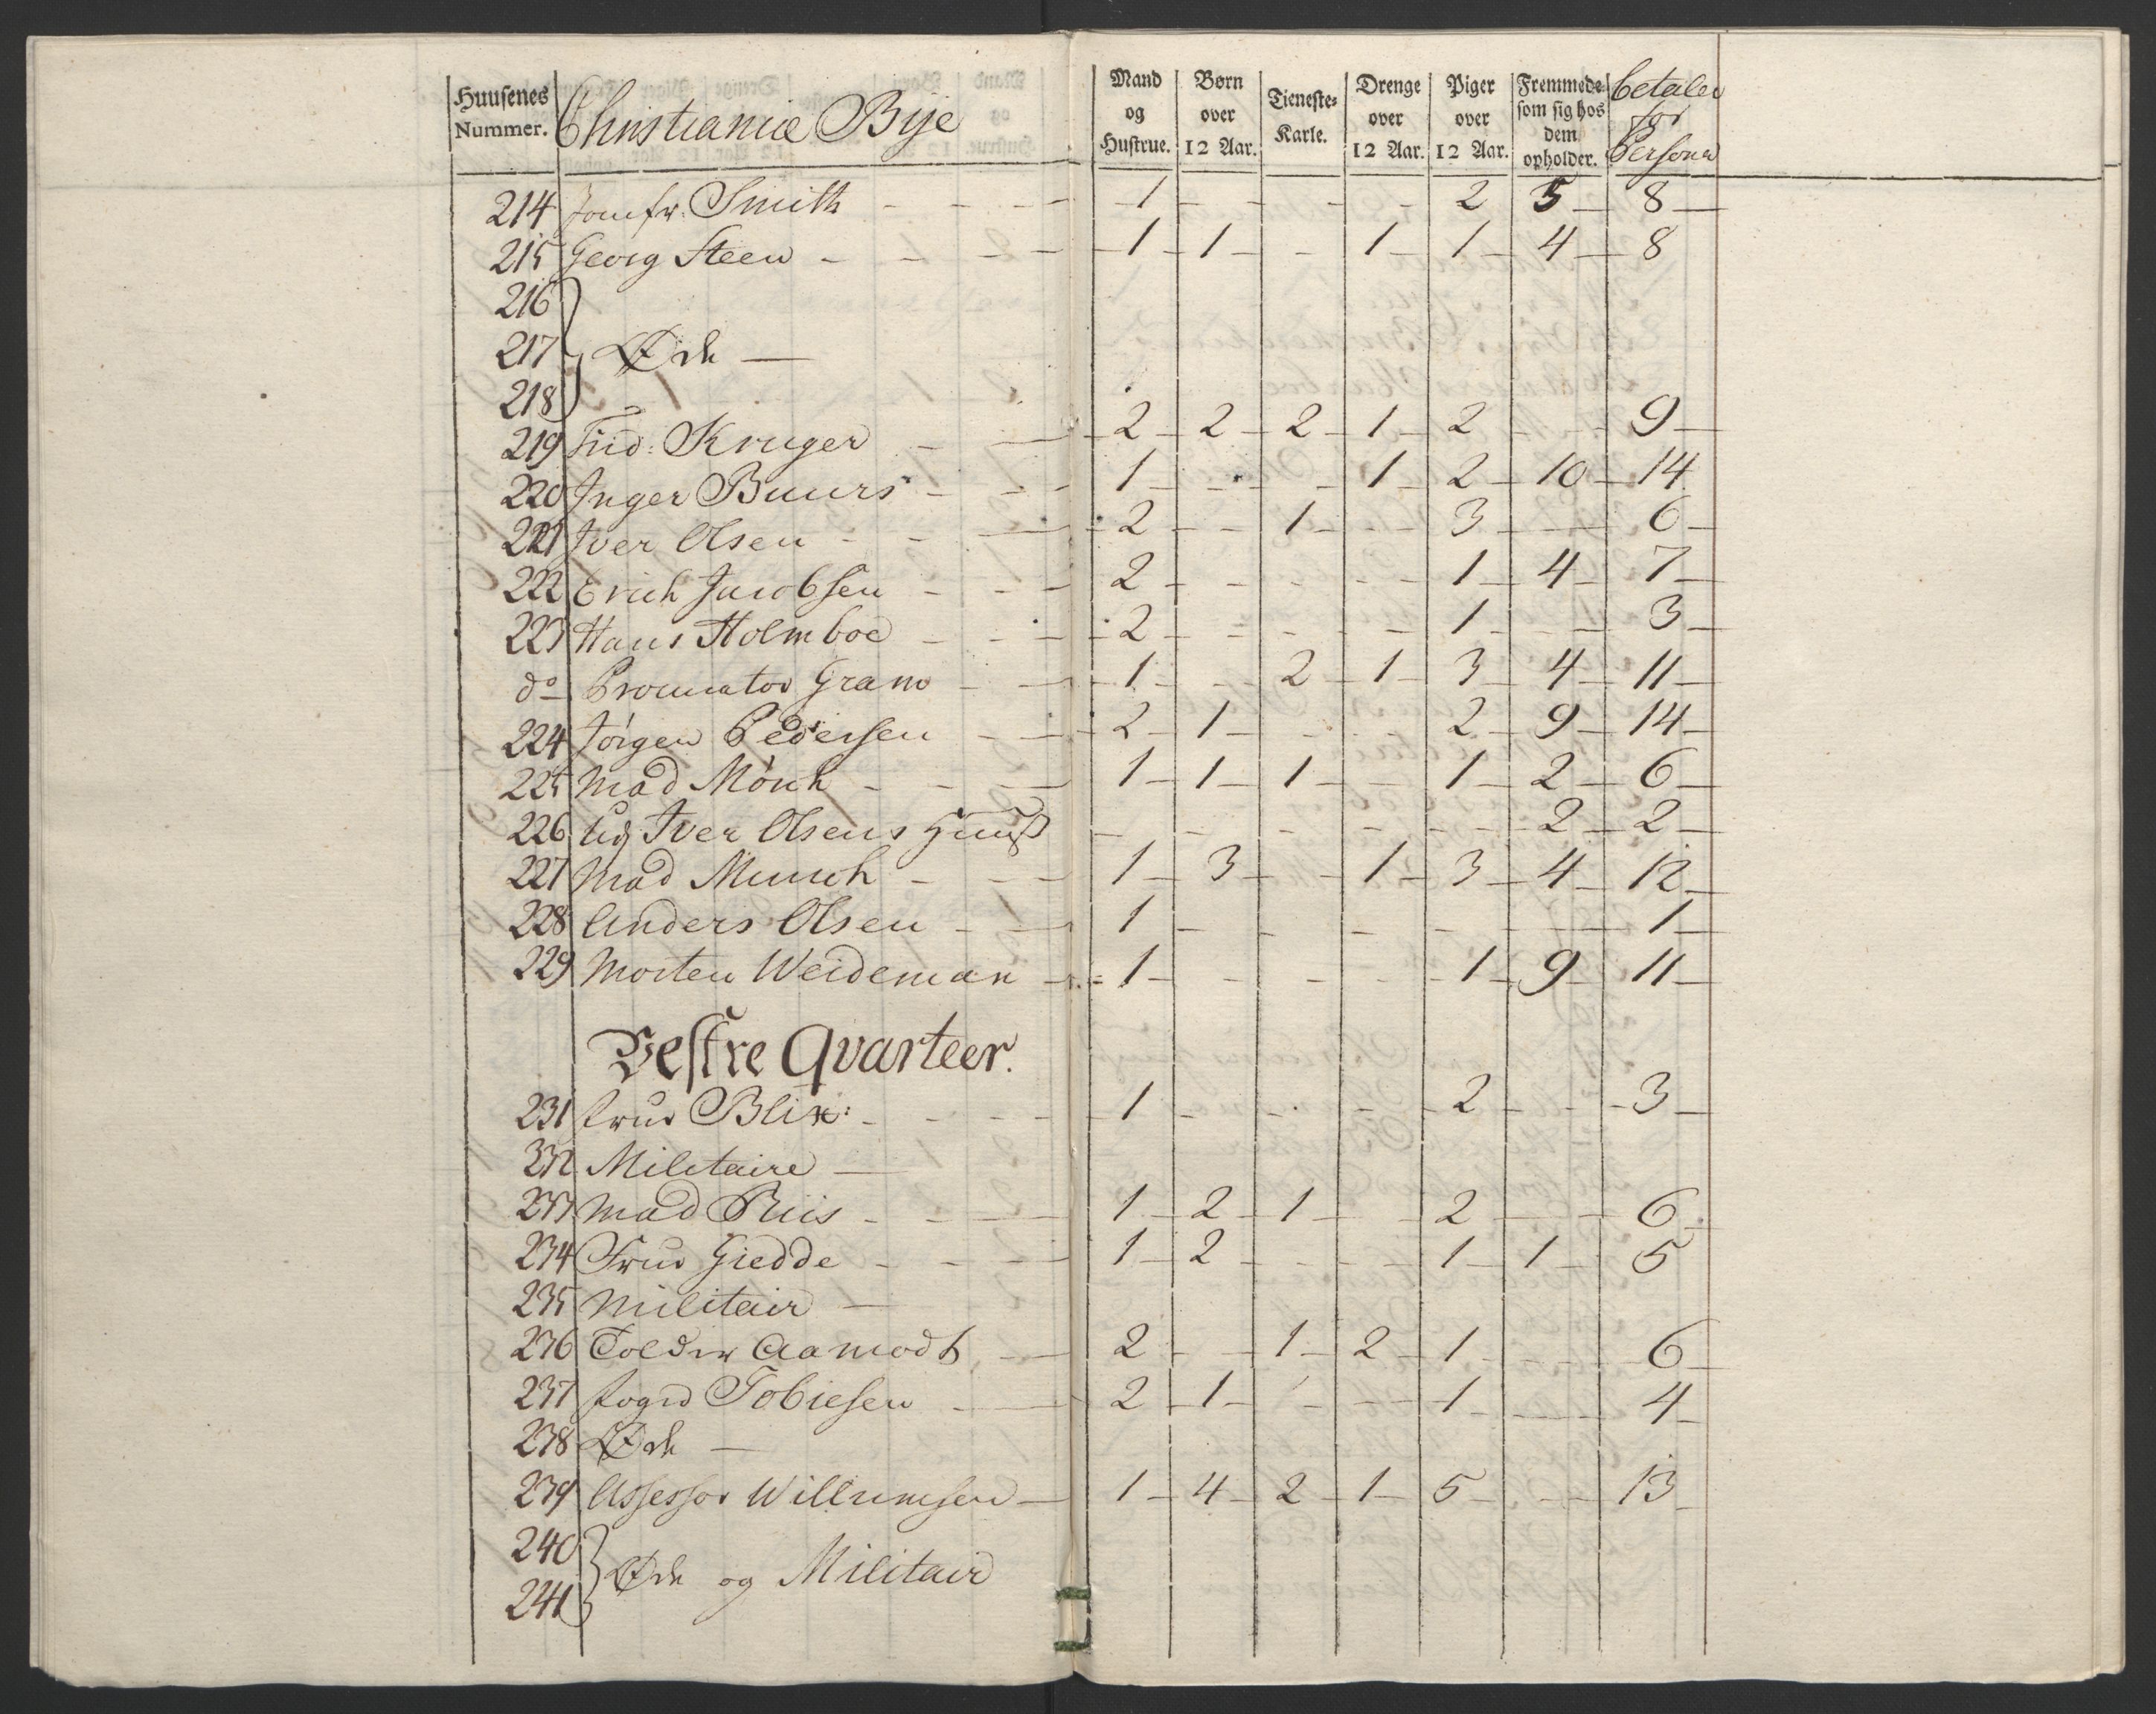 Huusenes Nummer. Christianiæ Bye Mand og Hustrue. Børn over 12 Aar. Tieneste-Karle. Drenge over 12 Aar. Piger over 12 Aar. Fremmede som sig hos dem opholder. betaler for Persona
214 Jomfr: Smith - - - - 1 - - - - 2 5 - 8 -
215 Georg Steen - - - - 1 - 1 - - 1 - 1 - 4 - 8
216
217 Øde -
218
219 Frid: Kruger - - 2 - 2 - 2 - 1 - 2 - - - 9 -
220 Inger Buurs - - - 1 - - - 1 - 2 - 10 - 14
221 Iver Olsen - - - 2 - - 1 - - - 3 - - - 6 -
222 Erich Jacobsen - - - 2 - - - - - 1 - 4 - 7 -
223 Hans Holmboe - - - 2 - - - - - 1 - - - 3 -
do Procurator Gram - - 1 - - 2 - 1 - 3 - 4 - 11 -
224 Jørgen Pedersen - - - 2 - 1 - - - 2 - 9 - 14 -
225 Mad Mønk - - - - 1 - 1 - 1 - - 1 - 2 - 6 -
226 udj Iver Olsens Huuß - - - - - - 2 - 2 -
227 Mad Munch - - - 1 - 3 - - 1 - 3 - 4 - 12 -
228 Anders Olsen - - 1 - - - - - - - 1 -
229 Morten Weideman - - 1 - - - - - 1 - 9 - 11 -
Vestre Qvarteer.
231 Frue Blix: - - - - 1 - - - - 2 - - - 3 -
232 Militaire -
233 Mad Riis - - - 1 - 2 - 1 - - 2 - - - 6 -
234 Frue Giedde - - - - 1 - 2 - - - - 1 - 1 - 5
235 Militair -
236 Tolder Aamodt - - 2 - - 1 - 2 - 1 - - - 6 -
237 Fogd Tobiesen - - 2 - 1 - - - - 1 - - - 4 -
238 Øde -
239 Assessor Willumsen - 1 - 4 - 2 - 1 - 5 - - - 13 -
240
241 Øde og Militair